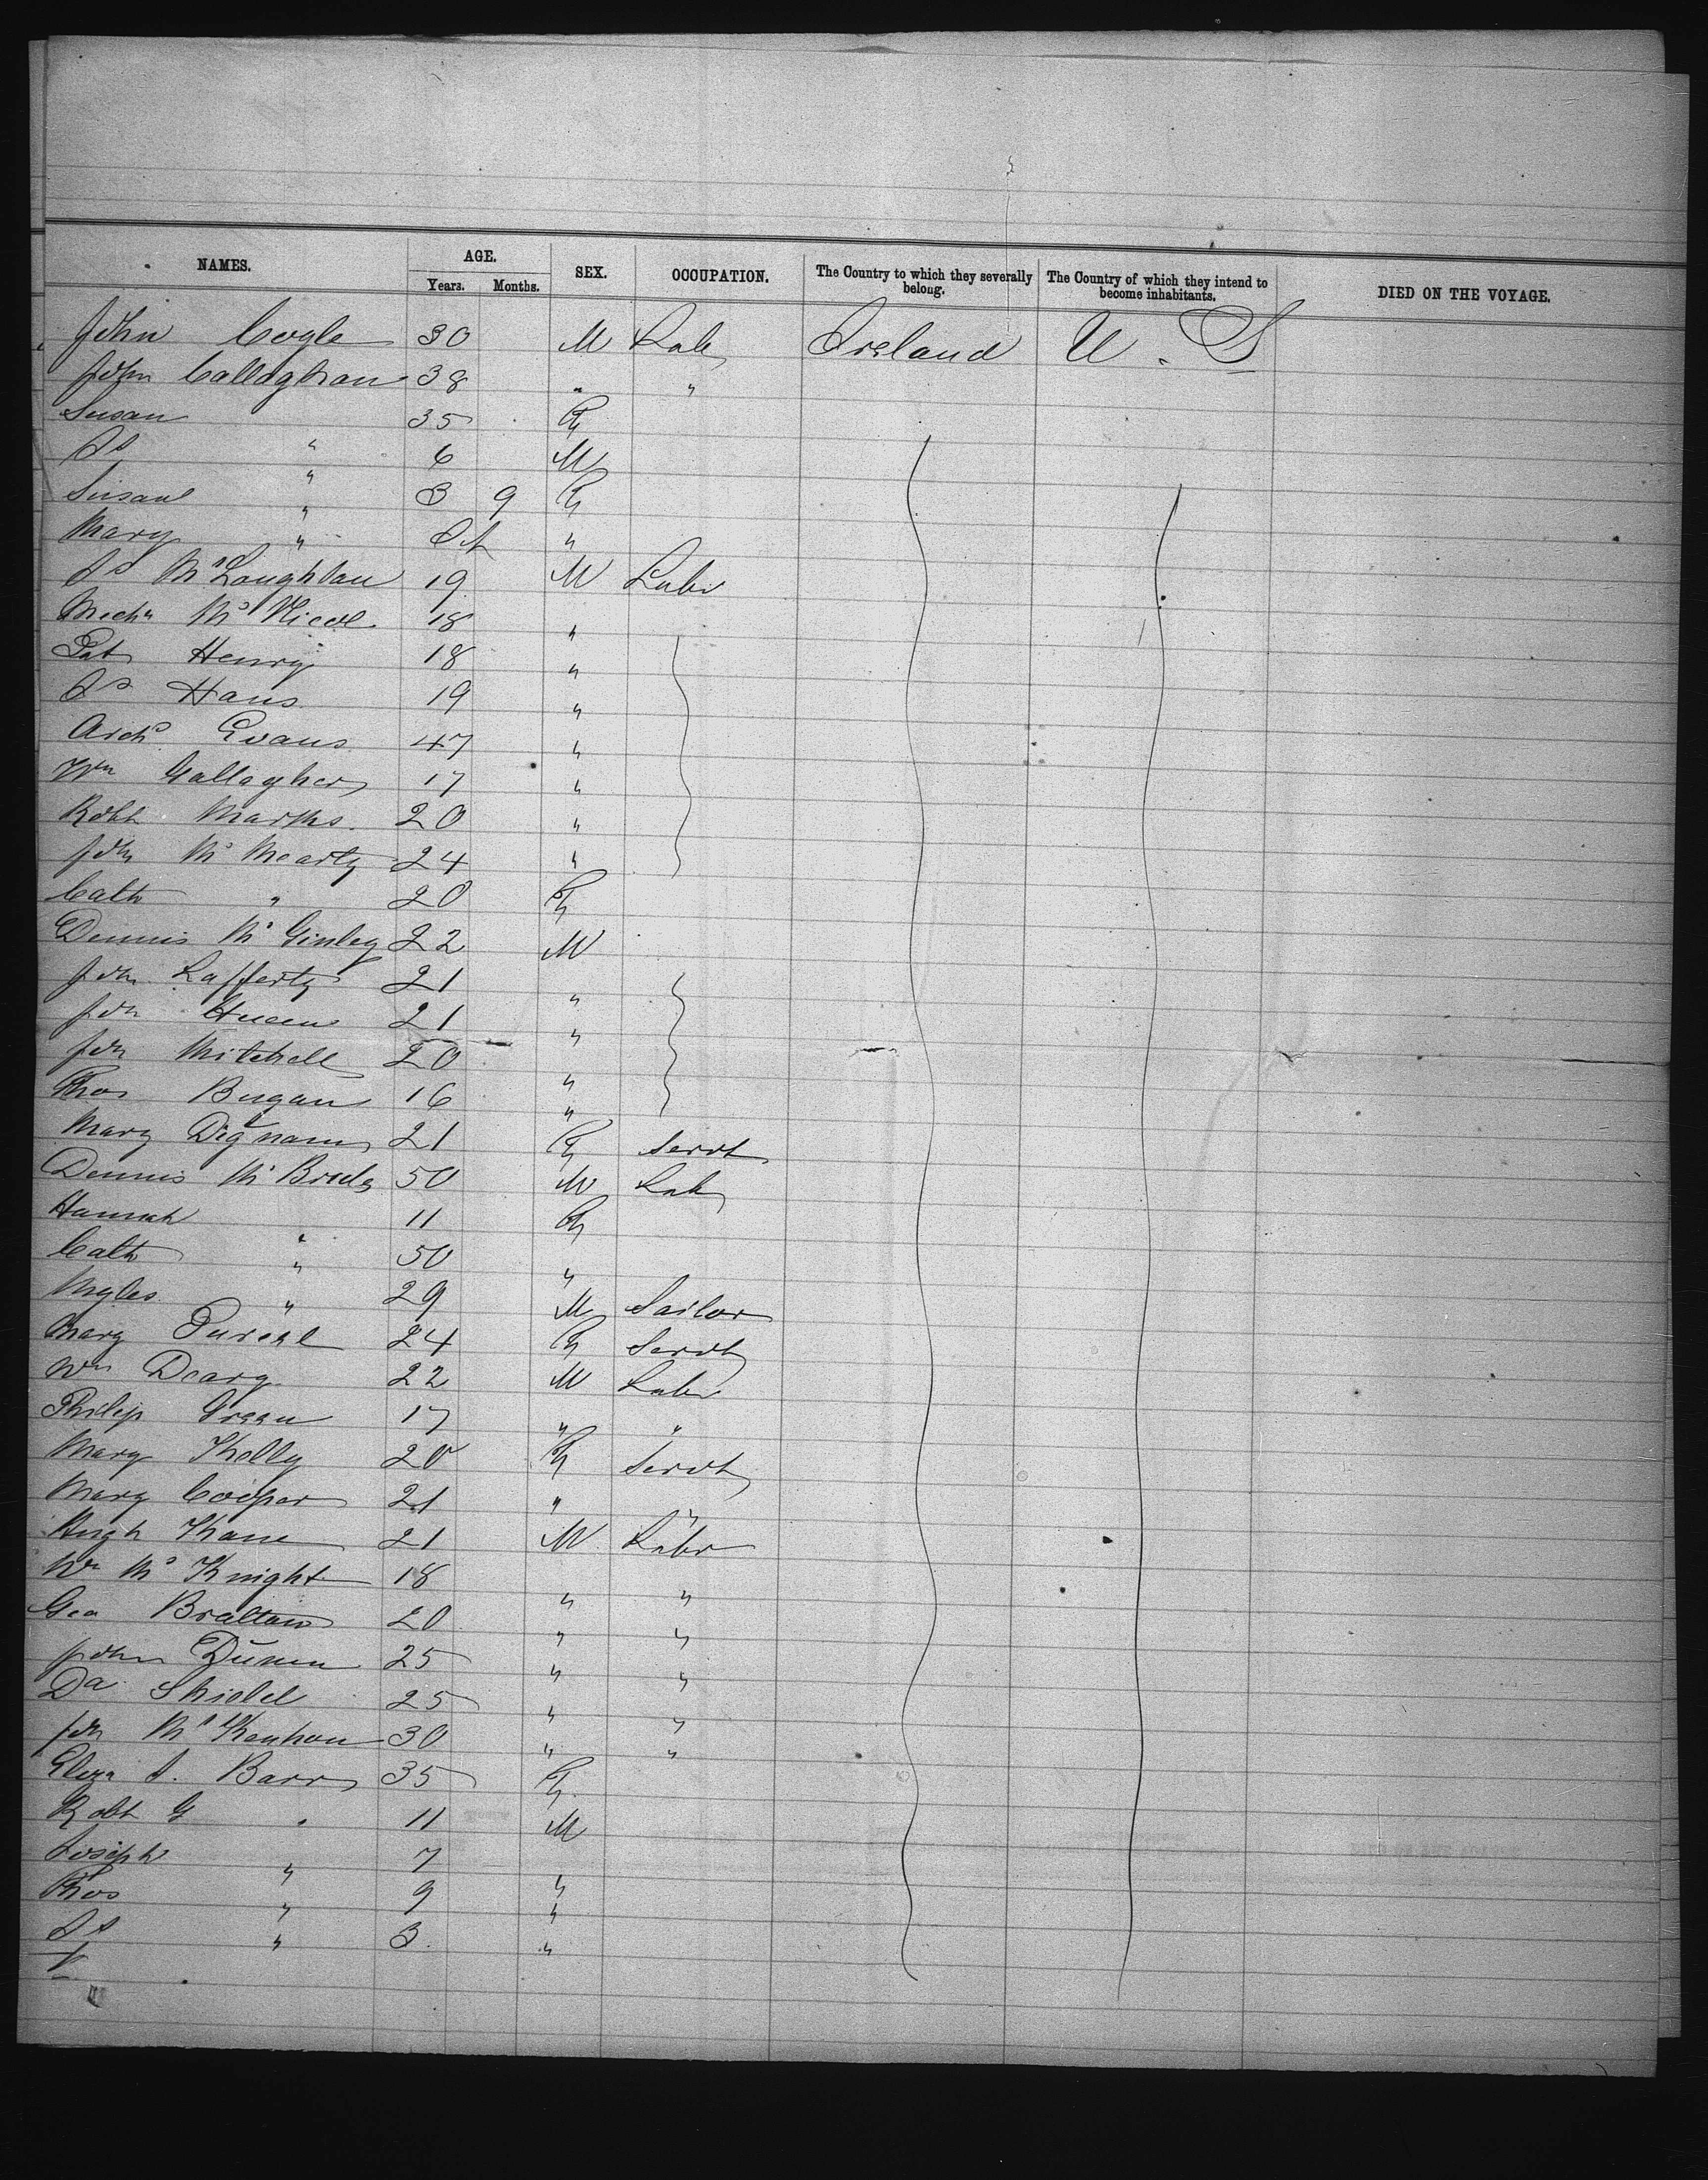 NAMES. AGE. SEX. OCCUPATION. The Country to which they severally belong. The Country of which they intend to become inhabitants. DIED ON THE VOYAGE.
Years. Months.
John Cogle 30 M Lab Ireland U. S
John Callaghan 38 " "
Susan 35 F
Js " 6 M
Susan " 3 9 F
Mary " "
Js McLaughlan 19 M Labr
Mc Nicol 18 "
Pat Henry 18 "
Js Haus 19 "
Archd Evans 47 "
Wm Gallagher 17 "
Robt Marks 20 "
John Mc Nearty 24 "
Cath " 20 F
Dennis Mc Ginley 22 M
John Lafferty 21 "
Jon 21 "
Jon Mitchell 20 "
Thos Bugan 16 "
Mary Dignam 21 F Servt
Dennis Mc Bride 50 M Lab
Hannah " 11 F
Cath " 50 "
Myles " 29 M Sailor
Mary Purcel 24 F Servt
Wm Deary 22 M Labr
Philip Green 17 " "
Mary Kelly 20 F Servt
Mary Cooper 21 " "
Hugh Kane 21 M Labr
Wm Mc Knight 18 " "
Geo Braltan 20 " "
John Dunn 25 " "
Da Shidel 25 " "
Jon Mc 30 " "
Eliza A. Barr 35 F
Robt G " 11 M
Joseph " 7 "
Thos " 9 "
Js " 3 "